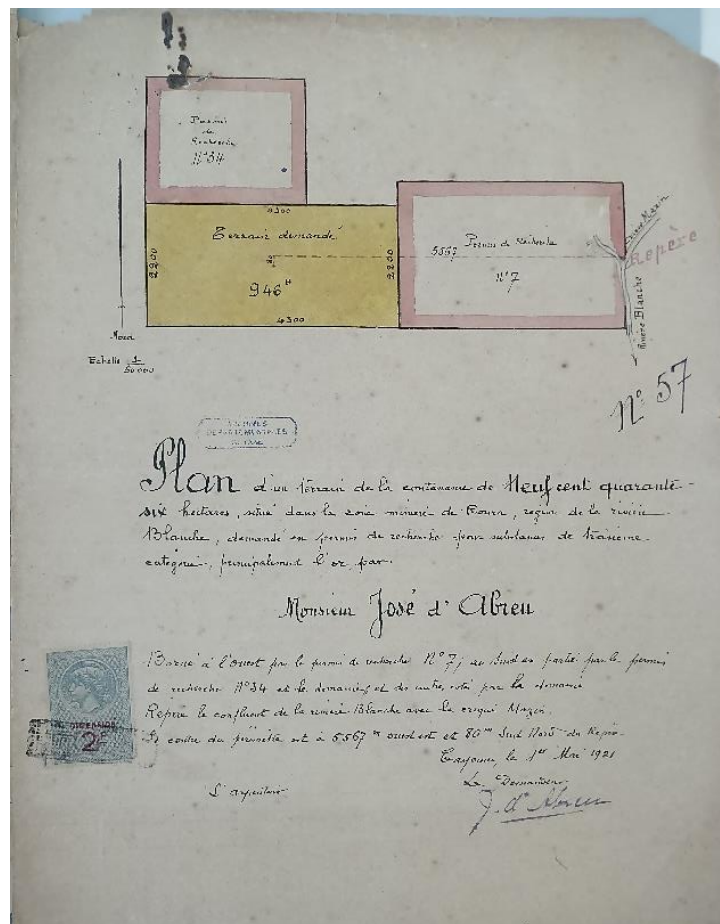 Permis
de
Recherche
N° 34
4300
Terrain demandé
2200
2200
80
946 H
4300
5567
Permis de Recherche
N° 7
Crique Mazin
Repère
Rivière Blanche
Nord
Echelle 1
50 000
N° 57
ARCHIVES
DÉPARTEMENTALES
Plan d'un terrain de la contenance de Neuf cent quarante-
six hectares, situé dans la zone minière de, région de la rivière
Blanche, demandé en permis de recherche pour substances de troisième
catégorie, principalement l'or par.
Monsieur José d'Abreu
Borné à l'ouest par le permis de recherche N° 7; au Sud en partie par le permis
de recherche N° 34 et le domaine, et des autres cotés par le domaine
Repère le confluent de la rivière Blanche avec la crique Mazin.
Le centre du périmètre est à 5,567 m ouest est et 80 m Sud Nord du Repère.
Cayenne, le 1er Mai 1921
Le Demandeur
L'arpenteur
J. d'Abreu
2F